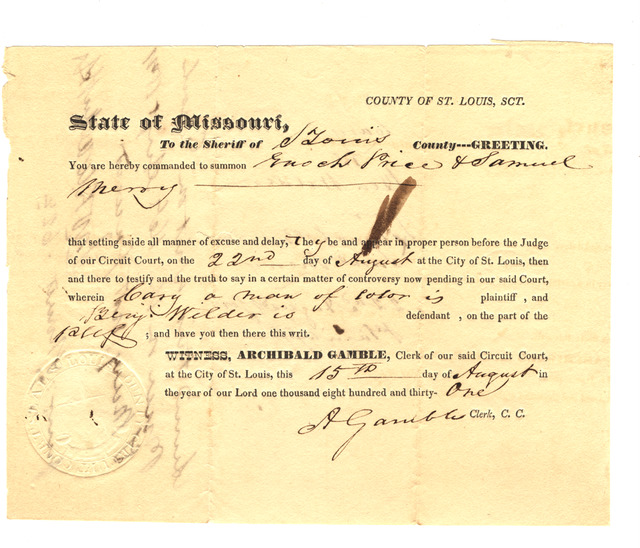 COUNTY OF ST. LOUIS, SCT.
State of Missouri,
To the Sheriff of St Louis County---GREETING.
You are hereby commanded to summon Enoch Price & Samuel
Merry
that setting aside all manner of excuse and delay, They be and appear in proper person before the Judge
of our Circuit Court, on the 22nd day of August at the City of St. Louis, then
and there to testify and the truth to say in a certain matter of controversy now pending in our said Court,
wherein Cary a man of color is plaintiff , and
Benj. Wilder is defendant , on the part of the
Pltff ; and have you then there this writ.
WITNESS, ARCHIBALD GAMBLE, Clerk of our said Circuit Court,
at the City of St. Louis, this 15th day of August in
the year of our Lord one thousand eight hundred and thirty- One
A Gamble Clerk, C. C.